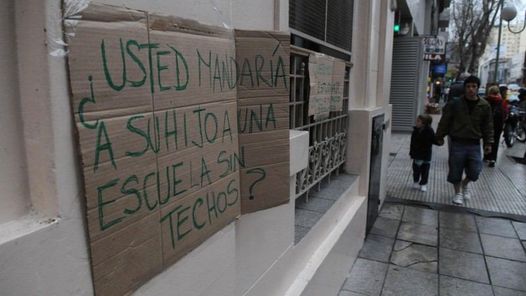 ¿USTED MANDARÍA
A SU HIJO A UNA
ESCUELA SIN
TECHOS?